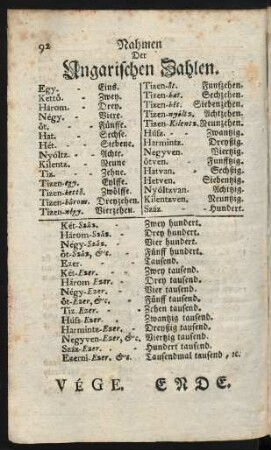 92 Nahmen
Der
Ungarischen Zahlen.
Egy. - Eins.
Kettő. - Zwey.
Három. - Drey.
Négy. - Viere.
öt. - Fünffe.
Hat. - Sechse.
Hét. - Siebene.
Nyóltz. - Achte.
Kilentz. - Neune
Tiz. - Zehne.
Tizen-egy. Eylffe.
Tizen-kettő. Zwölffe.
Tizen-három. Dreyzehen.
Tizen-négy. Vierzehen.
Tizen-öt. Funfzehen.
Tizen-hat. Sechzehen.
Tizen-hét. Siebenzehen.
Tizen-nyóltz. Achtzehen.
Tizen-Kilentz. Neunzehen.
Húsz. - - Zwantzig.
Harmintz. Dreyßig.
Negyven. Viertzig.
ötven. Funfftzig.
Hatvan. - Sechtzig.
Hetven. Siebentzig.
Nyóltzvan. Achtzig.
Kilentzven. Neuntzig.
Száz. - Hundert.
Két-Száz. - Zwey hundert.
Három-Száz. - Drey hundert.
Négy-Száz. - Vier hundert.
öt-Száz, &c. - Fünff hundert.
Ezer. - - Tausend.
Két-Ezer. - Zwey tausend.
Három Ezer. - Drey tausend.
Négy-Ezer. - Vier tausend.
öt-Ezer, &c. - Fünff tausend.
Tiz Ezer. - Zehen tausend.
Húsz-Ezer. - Zwantzig tausend.
Harmintz-Ezer. - Dreyßig tausend.
Negyven-Ezer, &c. Viertzig tausend.
Száz-Ezer. - Hundert tausend.
Ezerni-Ezer, &c. Tausendmal tausend, ꝛc.
VÉGE. ENDE.